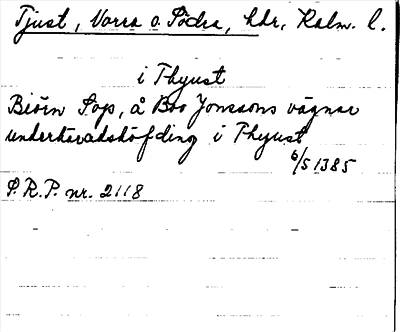 Tjust, Norra o. Södra, hdr, Kalm. l.
i Thyust
Biörn Sop, å Boo Jonssons vägnar
underhæradshöfding i Thyust
6/5 1385
S.R.P. nr. 2118